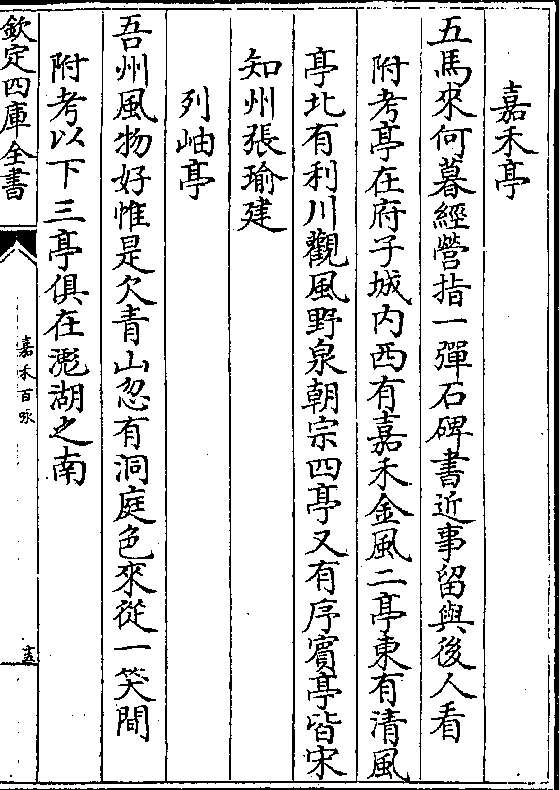 嘉禾亭
五馬來何暮經營指一彈石碑書近事留與後人看
附考亭在府子城内西有嘉禾金風二亭東有清風
亭北有利川觀風野泉朝宗四亭又有序賓亭皆宋
知州張瑜建
列岫亭
吾州風物好惟是欠青山忽有洞庭色來從一笑間
附考以下三亭俱在滮湖之南
欽定四庫全書
嘉禾百咏